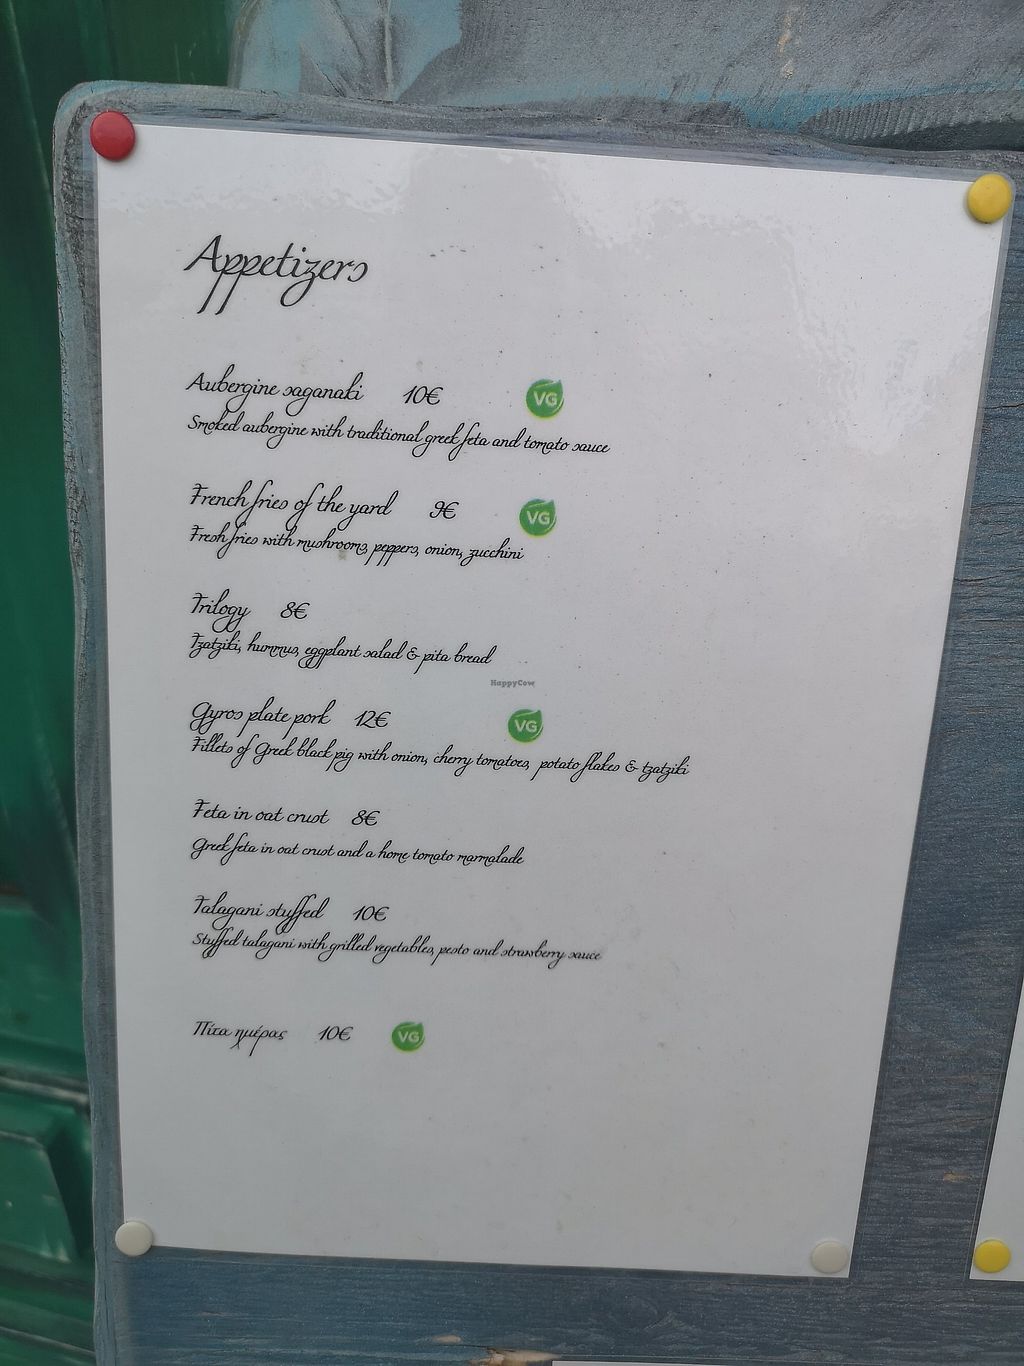 Appetizers
Aubergine saganaki 10€ VG
Smoked aubergine with traditional greek feta and tomato sauce
French fries of the yard 9€ VG
Fresh fries with mushrooms, peppers, onion, zucchini
Trilogy 8€
Tzatziki, hummus, eggplant salad & pita bread
HappyCow
Gyros plate pork 12€ VG
Fillets of Greek black pig with onion, cherry tomatoes, potato flakes & tzatziki
Feta in oat crust 8€
Greek feta in oat crust and a home tomato marmalade
Talagani stuffed 10€
Stuffed talagani with grilled vegetables, pesto and strawberry sauce
Πίτα ημέρας 10€ VG